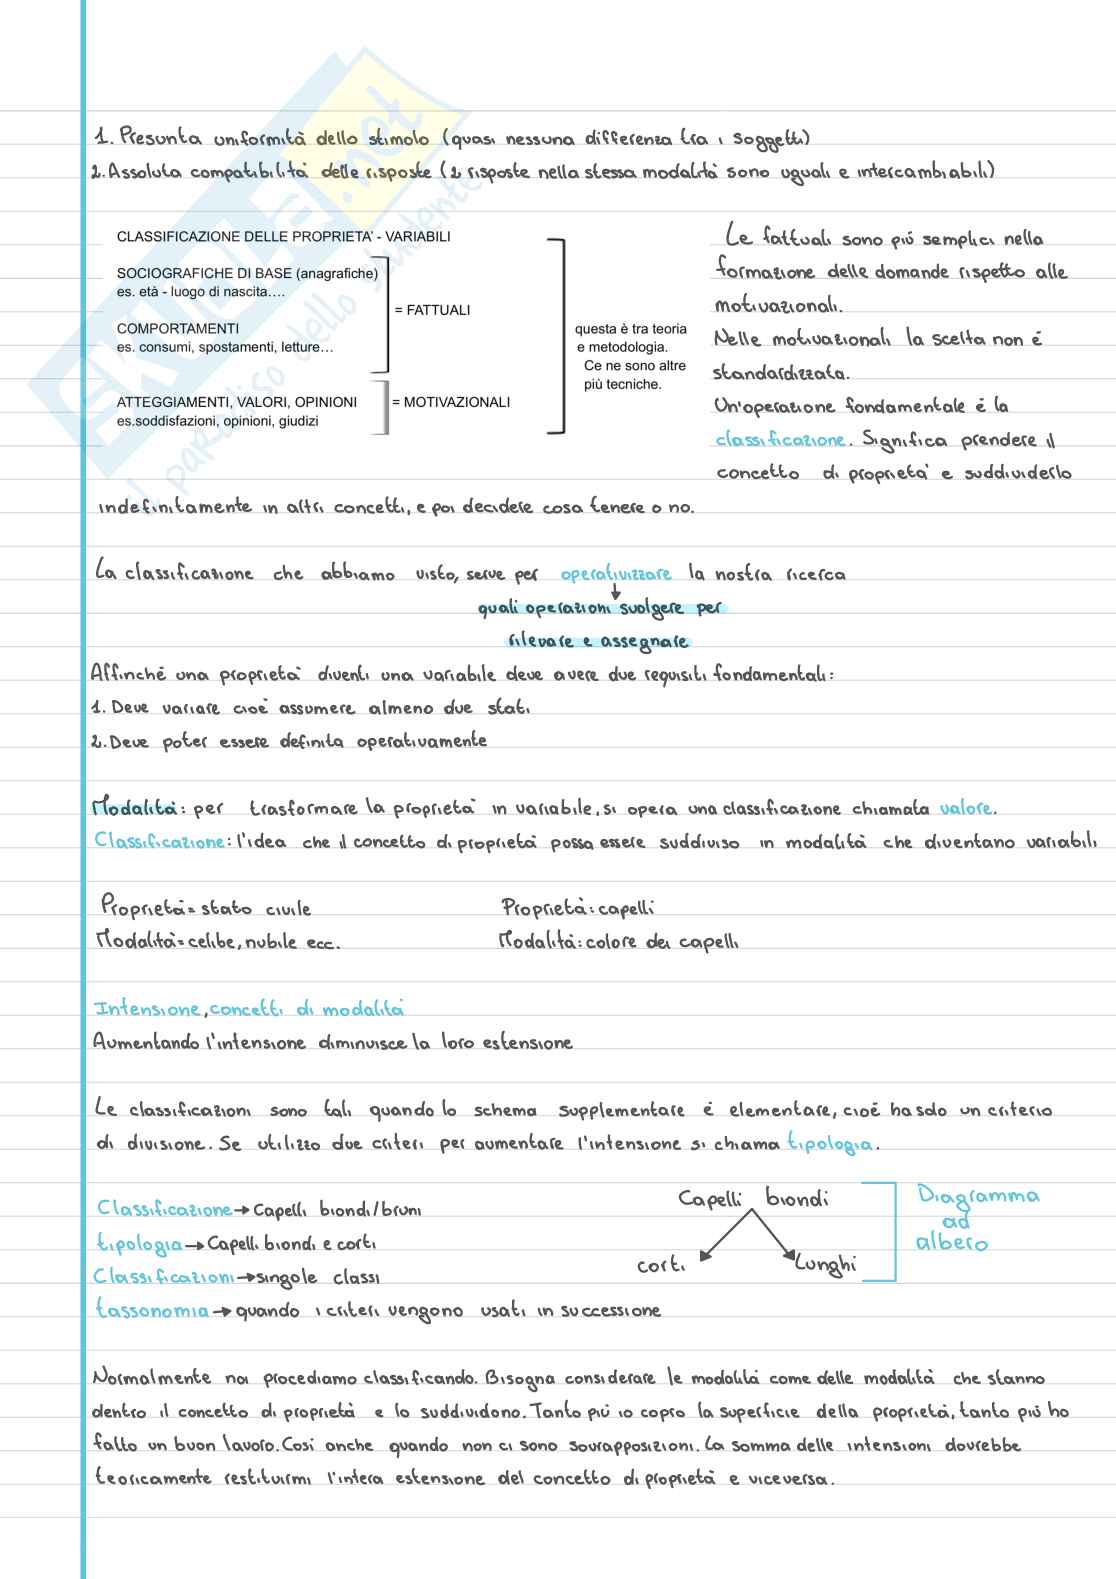 1. Presunta uniformità dello stimolo (quasi nessuna differenza tra i soggetti)
2. Assoluta compatibilità delle risposte (2 risposte nella stessa modalità sono uguali e intercambiabili)
CLASSIFICAZIONE DELLE PROPRIETA' - VARIABILI
SOCIOGRAFICHE DI BASE (anagrafiche)
es. età - luogo di nascita….
= FATTUALI
COMPORTAMENTI
es. consumi, spostamenti, letture…
ATTEGGIAMENTI, VALORI, OPINIONI
= MOTIVAZIONALI
es.soddisfazioni, opinioni, giudizi
questa è tra teoria
e metodologia.
Ce ne sono altre
più tecniche.
Le fattuali sono più semplici nella
formazione delle domande rispetto alle
motivazionali.
Nelle motivazionali la scelta non è
standardizzata.
Un'operazione fondamentale è la
classificazione. Significa prendere il
concetto di proprietà e suddividerlo
indefinitamente in altri concetti, e poi decidere cosa tenere o no.
La classificazione che abbiamo visto, serve per operativizzare la nostra ricerca
quali operazioni svolgere per
rilevare e assegnare
Affinché una proprietà diventi una variabile deve avere due requisiti fondamentali:
1. Deve variare cioè assumere almeno due stati
2. Deve poter essere definita operativamente
Modalità: per trasformare la proprietà in variabile, si opera una classificazione chiamata valore.
Classificazione: l'idea che il concetto di proprietà possa essere suddiviso in modalità che diventano variabili
Proprietà= stato civile
Modalità= celibe, nubile ecc.
Proprietà: capelli
Modalità: colore dei capelli
Intensione, concetti di modalità
Aumentando l'intensione diminuisce la loro estensione
Le classificazioni sono tali quando lo schema supplementare è elementare, cioè ha solo un criterio
di divisione. Se utilizzo due criteri per aumentare l'intensione si chiama tipologia.
Classificazione → Capelli biondi/bruni
tipologia → Capelli biondi e corti
Classificazioni → singole classi
tassonomia → quando i criteri vengono usati in successione
Capelli biondi
corti
Lunghi
Diagramma
ad
albero
Normalmente noi procediamo classificando. Bisogna considerare le modalità come delle modalità che stanno
dentro il concetto di proprietà e lo suddividono. Tanto più io copro la superficie della proprietà, tanto più ho
fatto un buon lavoro. Così anche quando non ci sono sovrapposizioni. La somma delle intensioni dovrebbe
teoricamente restituirmi l'intera estensione del concetto di proprietà e viceversa.
SKUOLA.net
il paradiso dello studente